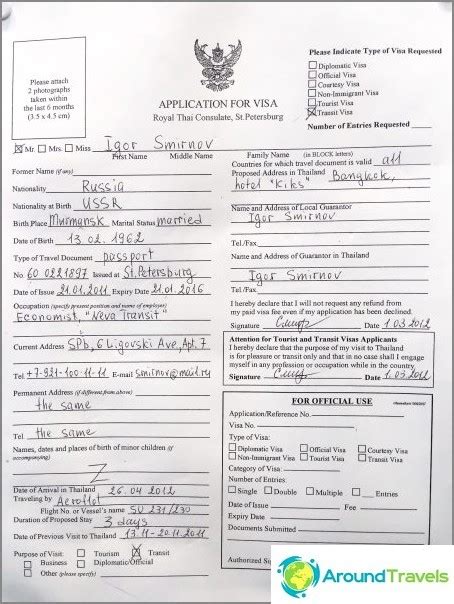 Please Indicate Type of Visa Requested
Diplomatic Visa
Official Visa
Courtesy Visa
Non-Immigrant Visa
Tourist Visa
Transit Visa
Number of Entries Requested
Please attach
2 photographs
taken within
the last 6 months
(3.5 x 4.5 cm)
APPLICATION FOR VISA
Royal Thai Consulate, St.Petersburg
Mr. Mrs. Miss Igor Smirnov
First Name Middle Name Family Name (in BLOCK letters)
Former Name (if any)
Nationality Russia
Nationality at Birth USSR
Birth Place Murmansk Marital Status married
Date of Birth 13.02.1962
Type of Travel Document passport
No 60 0221897 Issued at St.Petersburg
Date of Issue 21.01.2011 Expiry Date 21.01.2016
Occupation (specify present position and name of employer)
Economist, "Neva Transit"
Current Address SPb, 6 Ligovski Ave, Apt. 7
Tel +7-921-100-11-11 E-mail smirnov@mail.ru
Permanent Address (if different from above)
the same
Tel the same
Names, dates and places of birth of minor children (if
accompanying)
Z
Date of Arrival in Thailand 26.04.2012
Traveling by Aeroflot
Flight No. or Vessel's name SU 231/230
Duration of Proposed Stay 3 days
Date of Previous Visit to Thailand 13.11-20.11.2011
Purpose of Visit: Tourism Transit
Business Diplomatic/Official
Other (please specify)
Countries for which travel document is valid all
Proposed Address in Thailand Bangkok,
hotel "Kiks"
Name and Address of Local Guarantor
Igor Smirnov
Tel./Fax
Name and Address of Guarantor in Thailand
Igor Smirnov
Tel./Fax
I hereby declare that I will not request any refund from
my paid visa fee even if my application has been declined.
Signature Date 1.03.2012
Attention for Tourist and Transit Visas Applicants
I hereby declare that the purpose of my visit to Thailand
is for pleasure or transit only and that in no case shall I engage
myself in any profession or occupation while in the country
Signature Date 1.03.2012
FOR OFFICIAL USE
Application/Reference No.
Visa No.
Type of Visa:
Diplomatic Visa Official Visa Courtesy Visa
Non-Immigrant Visa Tourist Visa Transit Visa
Category of Visa:
Number of Entries:
Single Double Multiple Entries
Date of Issue Fee
Expiry Date
Documents Submitted
Authorized Sign
AroundTravels